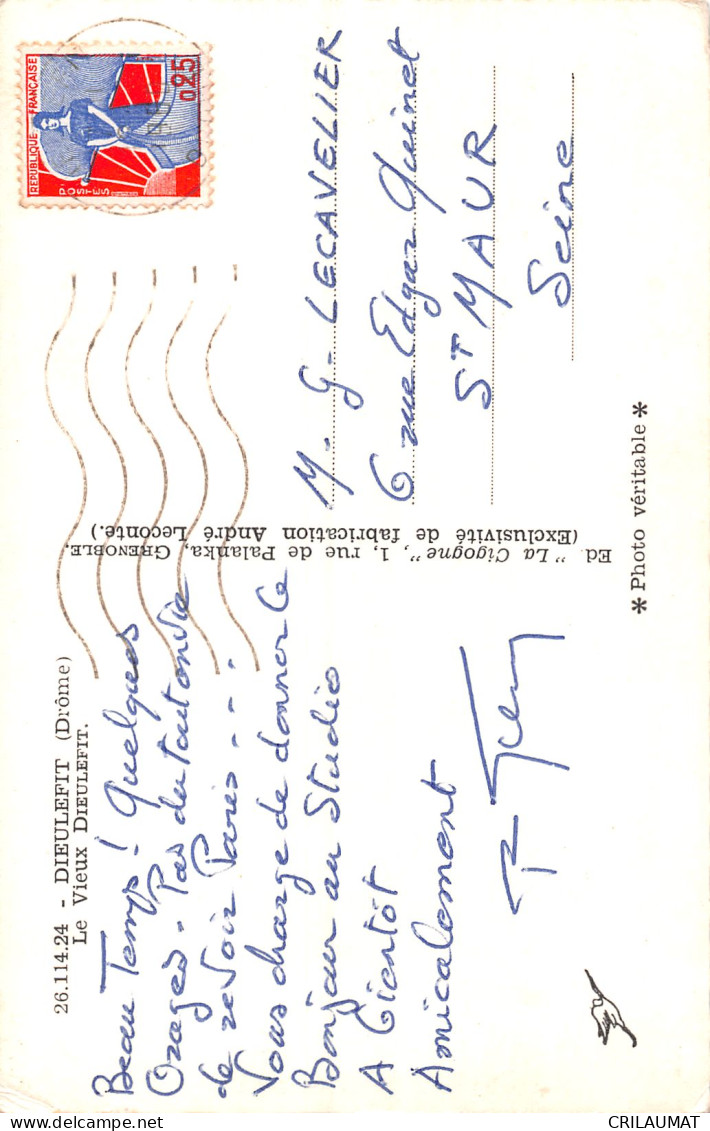 26.114.24 - DIEULEFIT (Drôme)
Le Vieux DIEULEFIT.
Beau Temps! Quelques
Orages. Pas du tout envie
de revoir Paris...
Vous charge de donner le
Bonjour au Studio
A Bientôt
Amicalement
Ed. "La Cigogne", 1, rue de Palanka, GRENOBLE.
(Exclusivité de fabrication André Leconte.)
REPUBLIQUE FRANÇAISE
POSTES
0,25
M. G. LECAVELIER
6 rue Edgar Quinet
ST MAUR
Seine
* Photo véritable *
CRILAUMAT